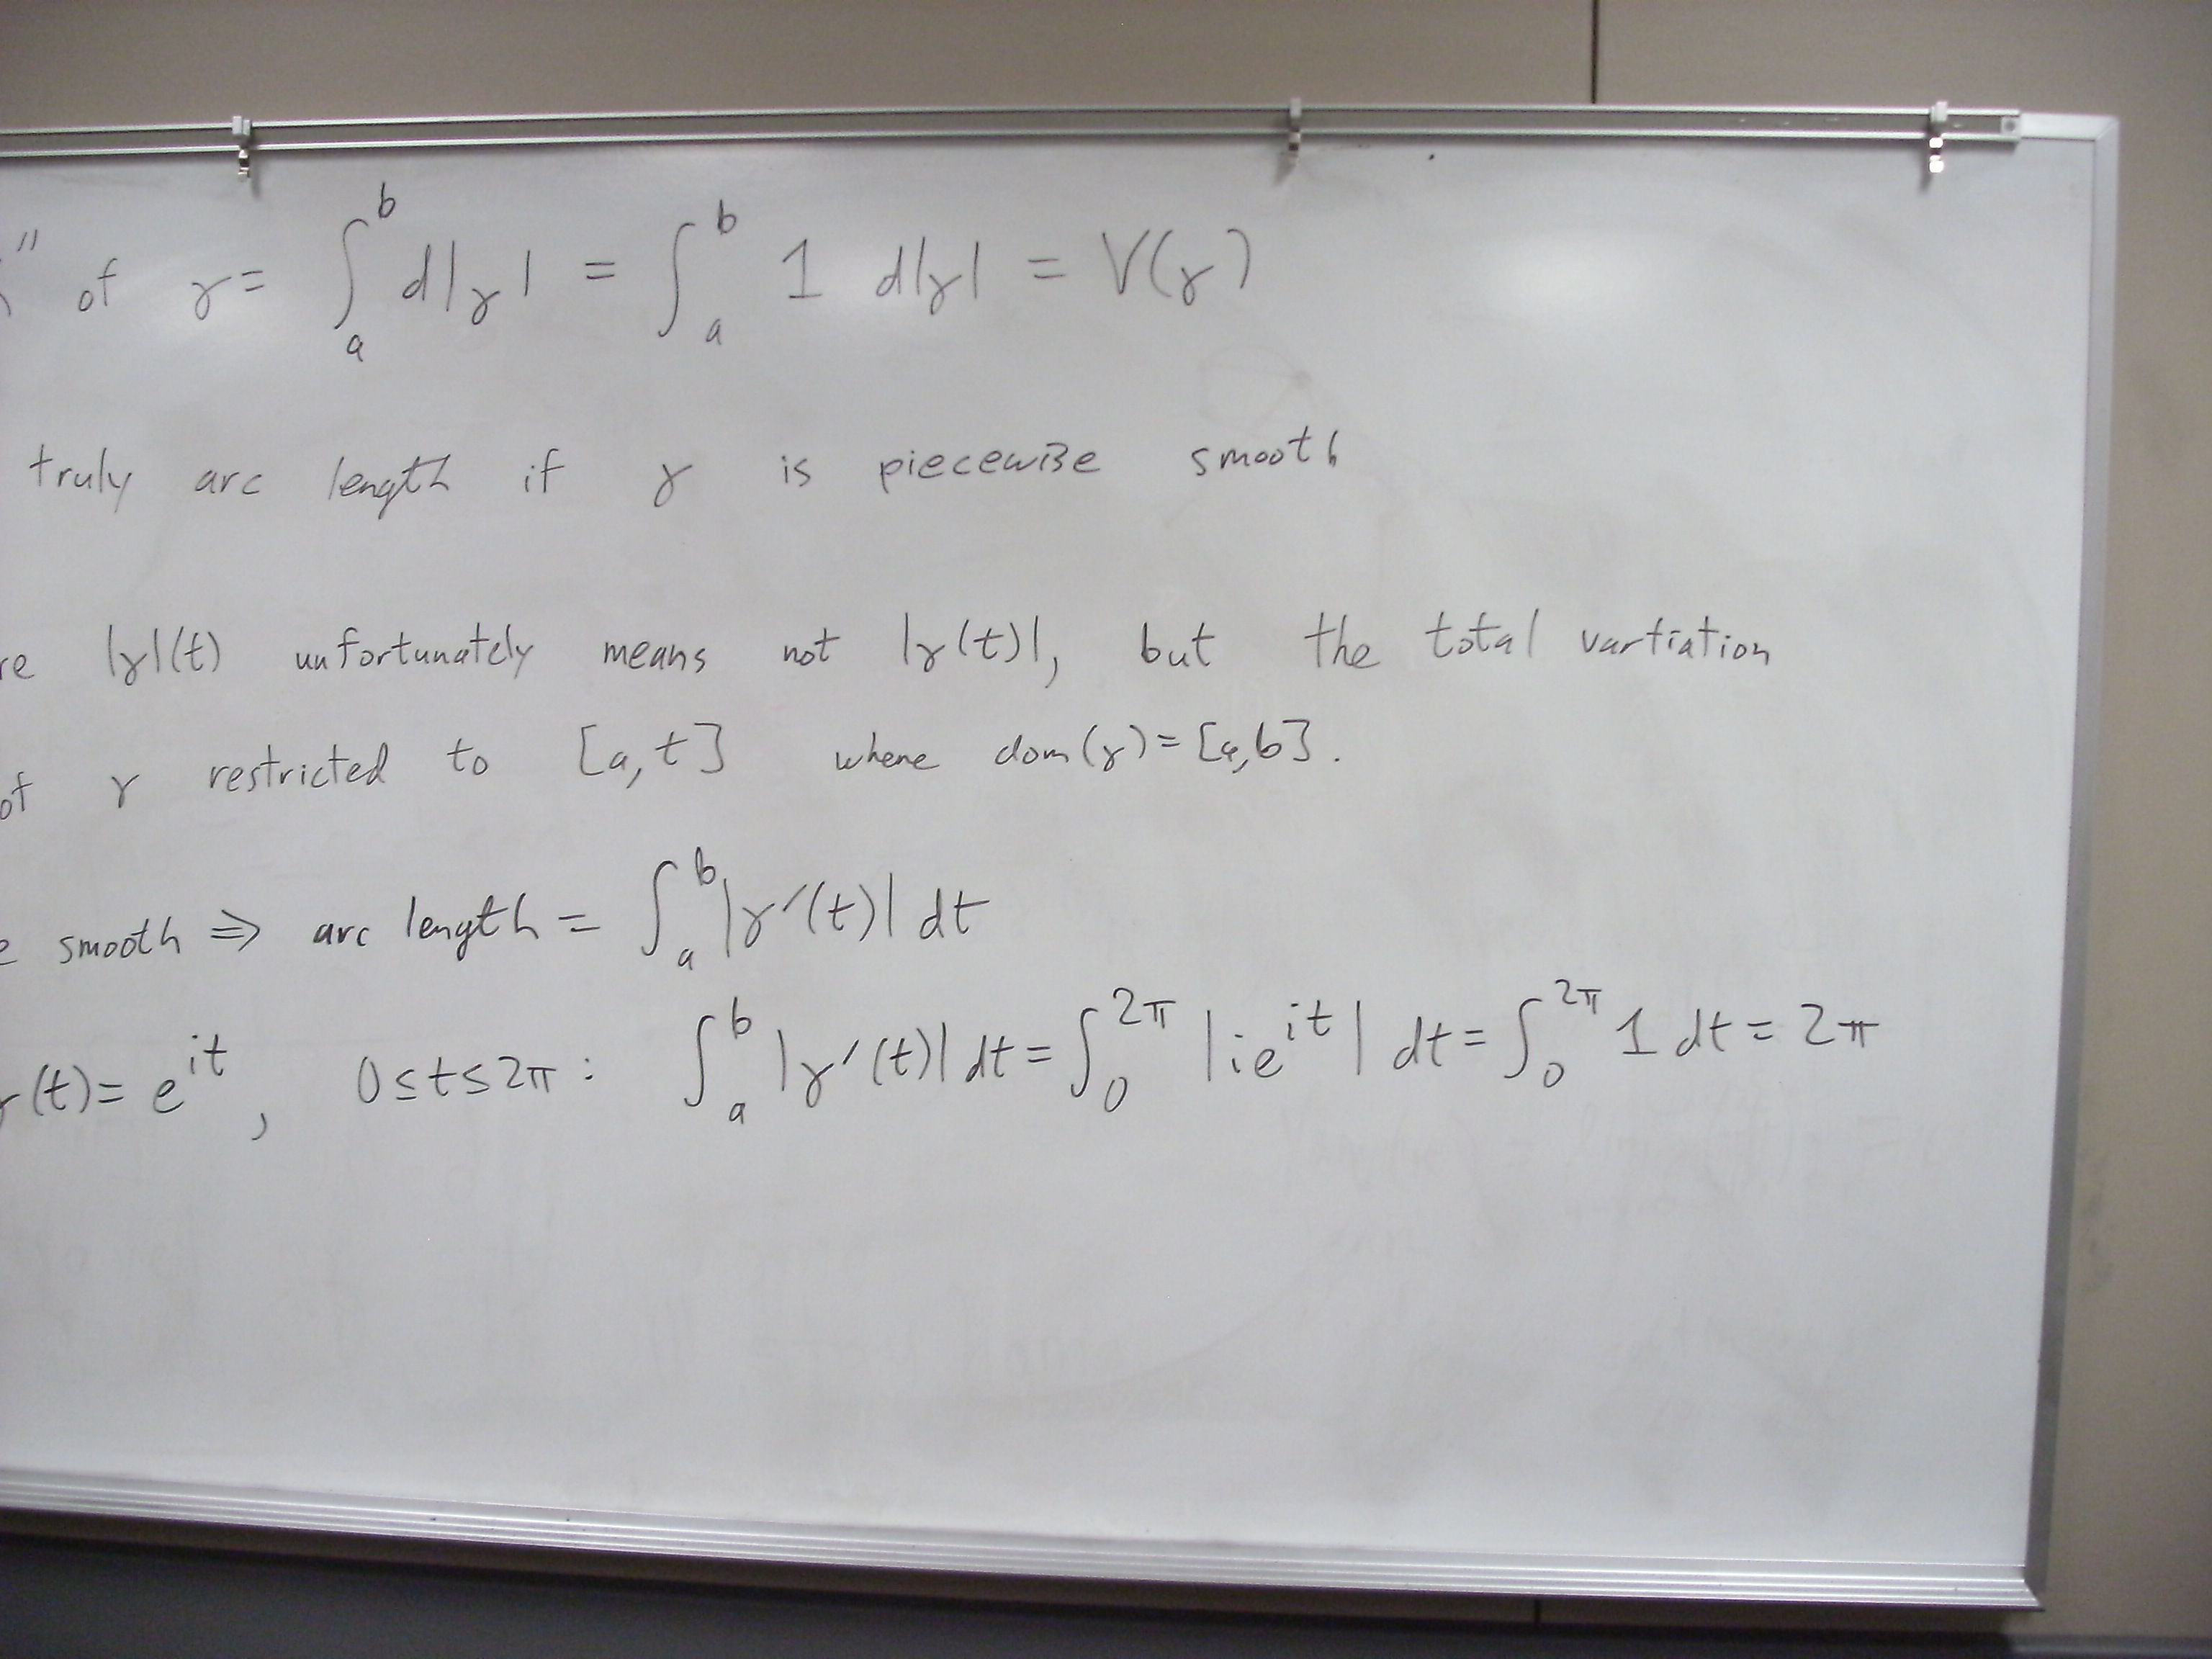 " of γ = ∫_a^b d|γ| = ∫_a^b 1 d|γ| = V(γ)
truly arc length if γ is piecewise smooth
re |γ|(t) unfortunately means not |γ(t)|, but the total vartiation
of γ restricted to [a, t] where dom(γ) = [a,b].
e smooth ⇒ arc length = ∫_a^b |γ'(t)| dt
γ(t) = e^{it}, 0 ≤ t ≤ 2π : ∫_a^b |γ'(t)| dt = ∫_0^{2π} |ie^{it}| dt = ∫_0^{2π} 1 dt = 2π